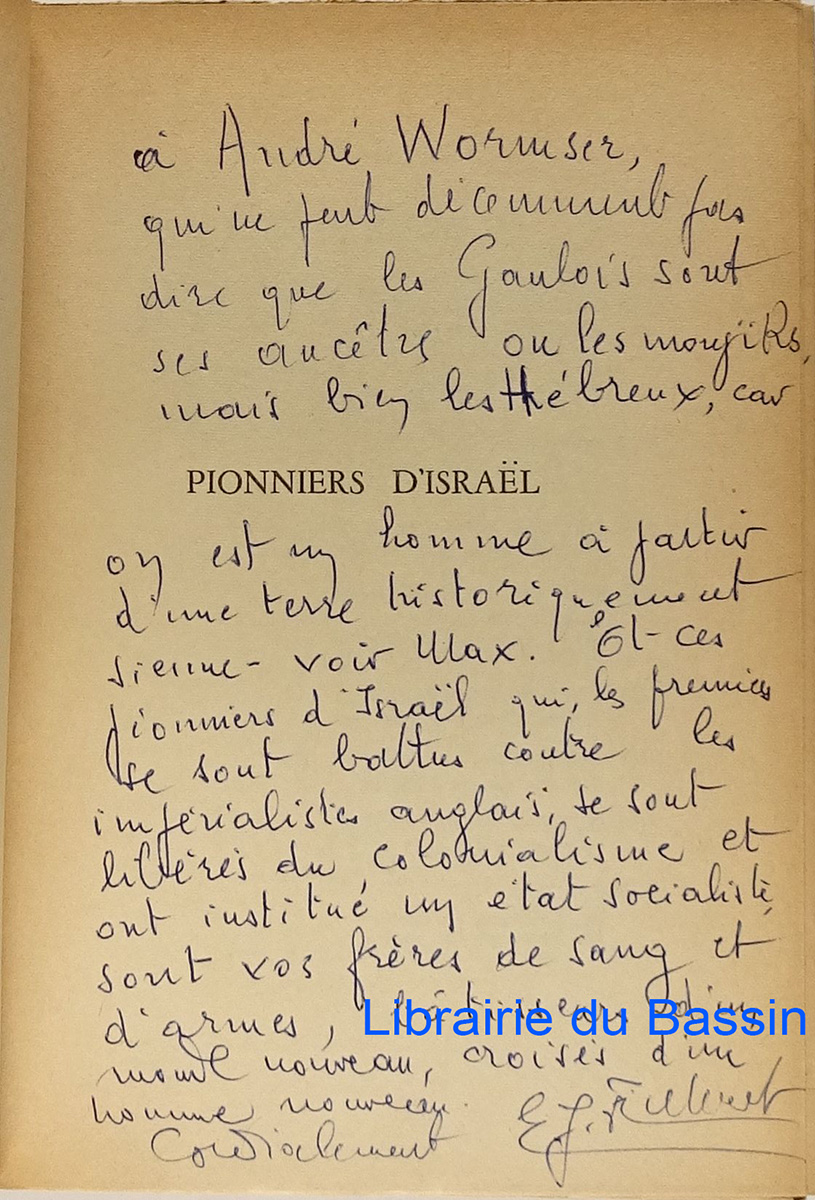 à André Wormser,
qui ne peut décemment pas
dire que les Gaulois sont
ses ancêtres ou les moujiks,
mais bien les Hébreux, car
PIONNIERS D'ISRAËL
on est un homme à partir
d'une terre historiquement
sienne - voir Max. Et ces
pionniers d'Israël qui, les premiers
se sont battus contre les
impérialistes anglais, se sont
libérés du colonialisme et
ont institué un état socialiste,
sont vos frères de sang et
d'armes, bâtisseurs d'un
Librairie du Bassin
monde nouveau, croisés d'un
homme nouveau.
Cordialement E. J.